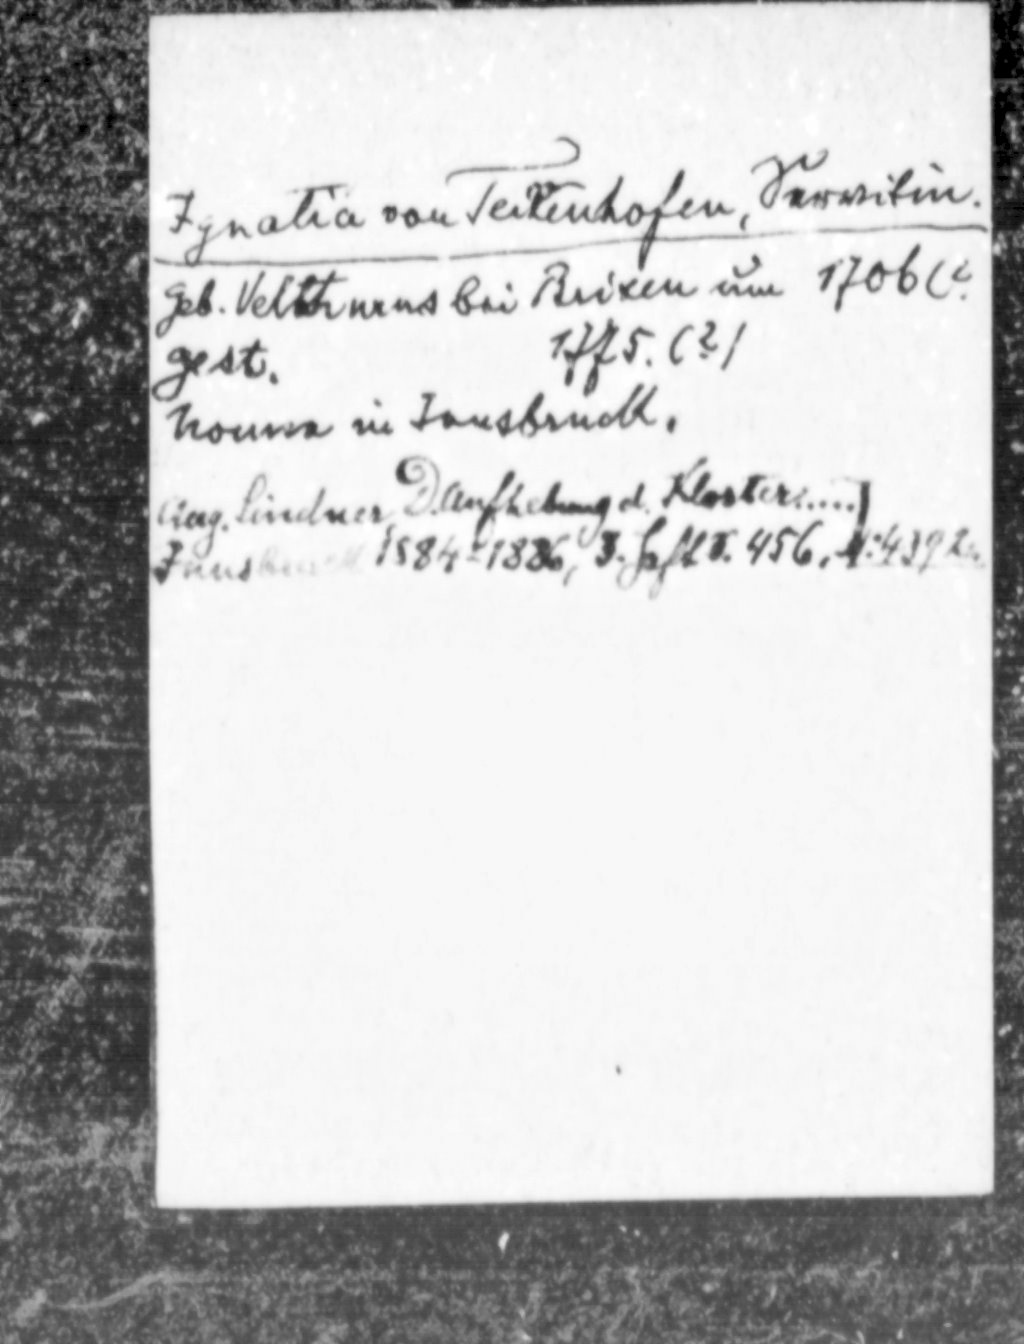 Ignatia von Teitenhofen, Servitin.
Geb. Velthurns bei Brixen um 1706 (?
gest. 1775. (?)
Nonne in Innsbruck.
Aug. Lindner, D. Aufhebung d. Klöster.....)
Innsbruck 1884-1886, 3. Heft S. 456.